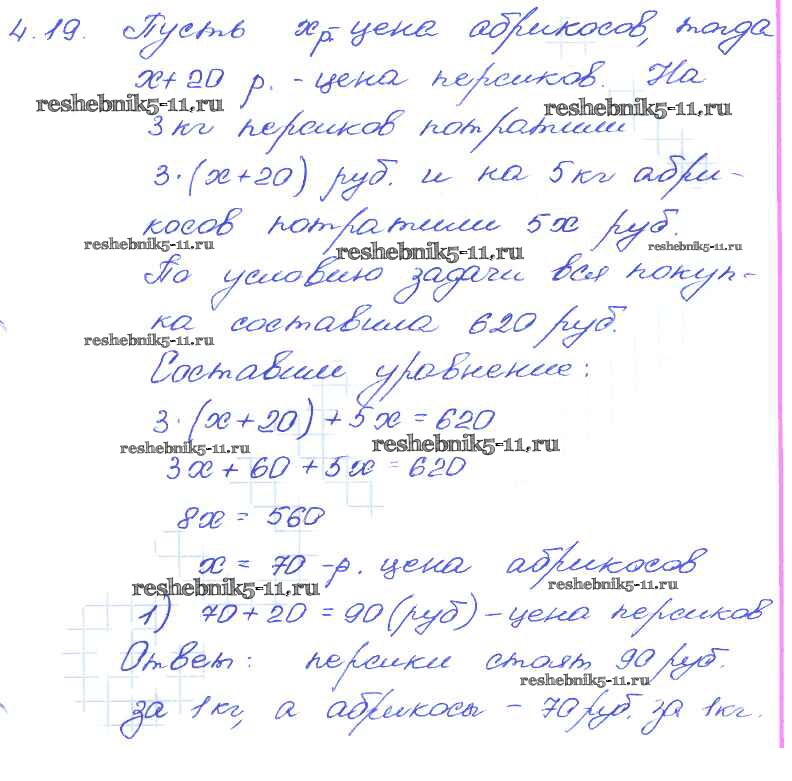 4.19. Пусть x р.-цена абрикосов, тогда
x+20 р. - цена персиков. На
reshebnik5-11.ru reshebnik5-11.ru
3 кг персиков потратили
3·(x+20) руб. и на 5 кг абри-
косов потратили 5x руб.
reshebnik5-11.ru reshebnik5-11.ru reshebnik5-11.ru
По условию задачи вся покуп-
ка составила 620 руб.
reshebnik5-11.ru
Составим уравнение:
3·(x+20)+5x=620
reshebnik5-11.ru reshebnik5-11.ru
3x+60+5x=620
8x=560
x=70-р. цена абрикосов
reshebnik5-11.ru reshebnik5-11.ru
1) 70+20=90(руб)-цена персиков
Ответ: персики стоят 90 руб.
reshebnik5-11.ru
за 1 кг, а абрикосы - 70 руб. за 1 кг.